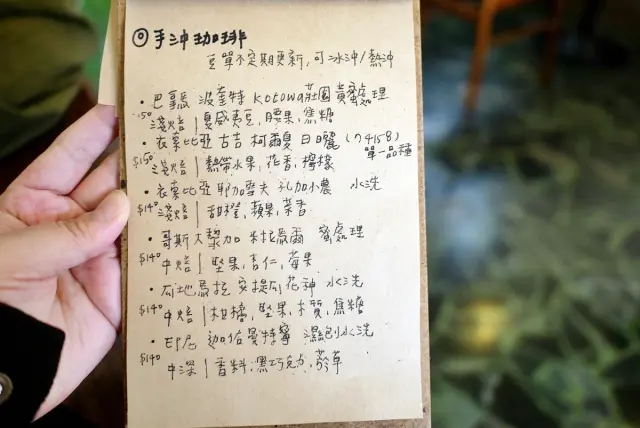 ◎手沖咖啡
豆單不定期更新，可冰沖/熱沖
• 巴拿馬 波奎特 Kotowa莊園 黃蜜處理
淺焙 | 夏威夷豆，腰果，焦糖
• 衣索比亞 古吉 柯爾夏 日曬 (74158)
單一品種
$150 淺焙 | 熱帶水果，花香，檸檬
• 衣索比亞 耶加雪夫 孔加小農 水洗
$140 淺焙 | 甜橙，蘋果，茉香
• 哥斯大黎加 米拉蘇爾 蜜處理
$140 中焙 | 堅果，杏仁，莓果
• 瓜地馬拉 安提瓜 花神 水洗
$140 中焙 | 柑橘，堅果，木質，焦糖
• 印尼 迦佑曼特寧 濕剝水洗
$140 中深 | 香料，黑巧克力，藥草